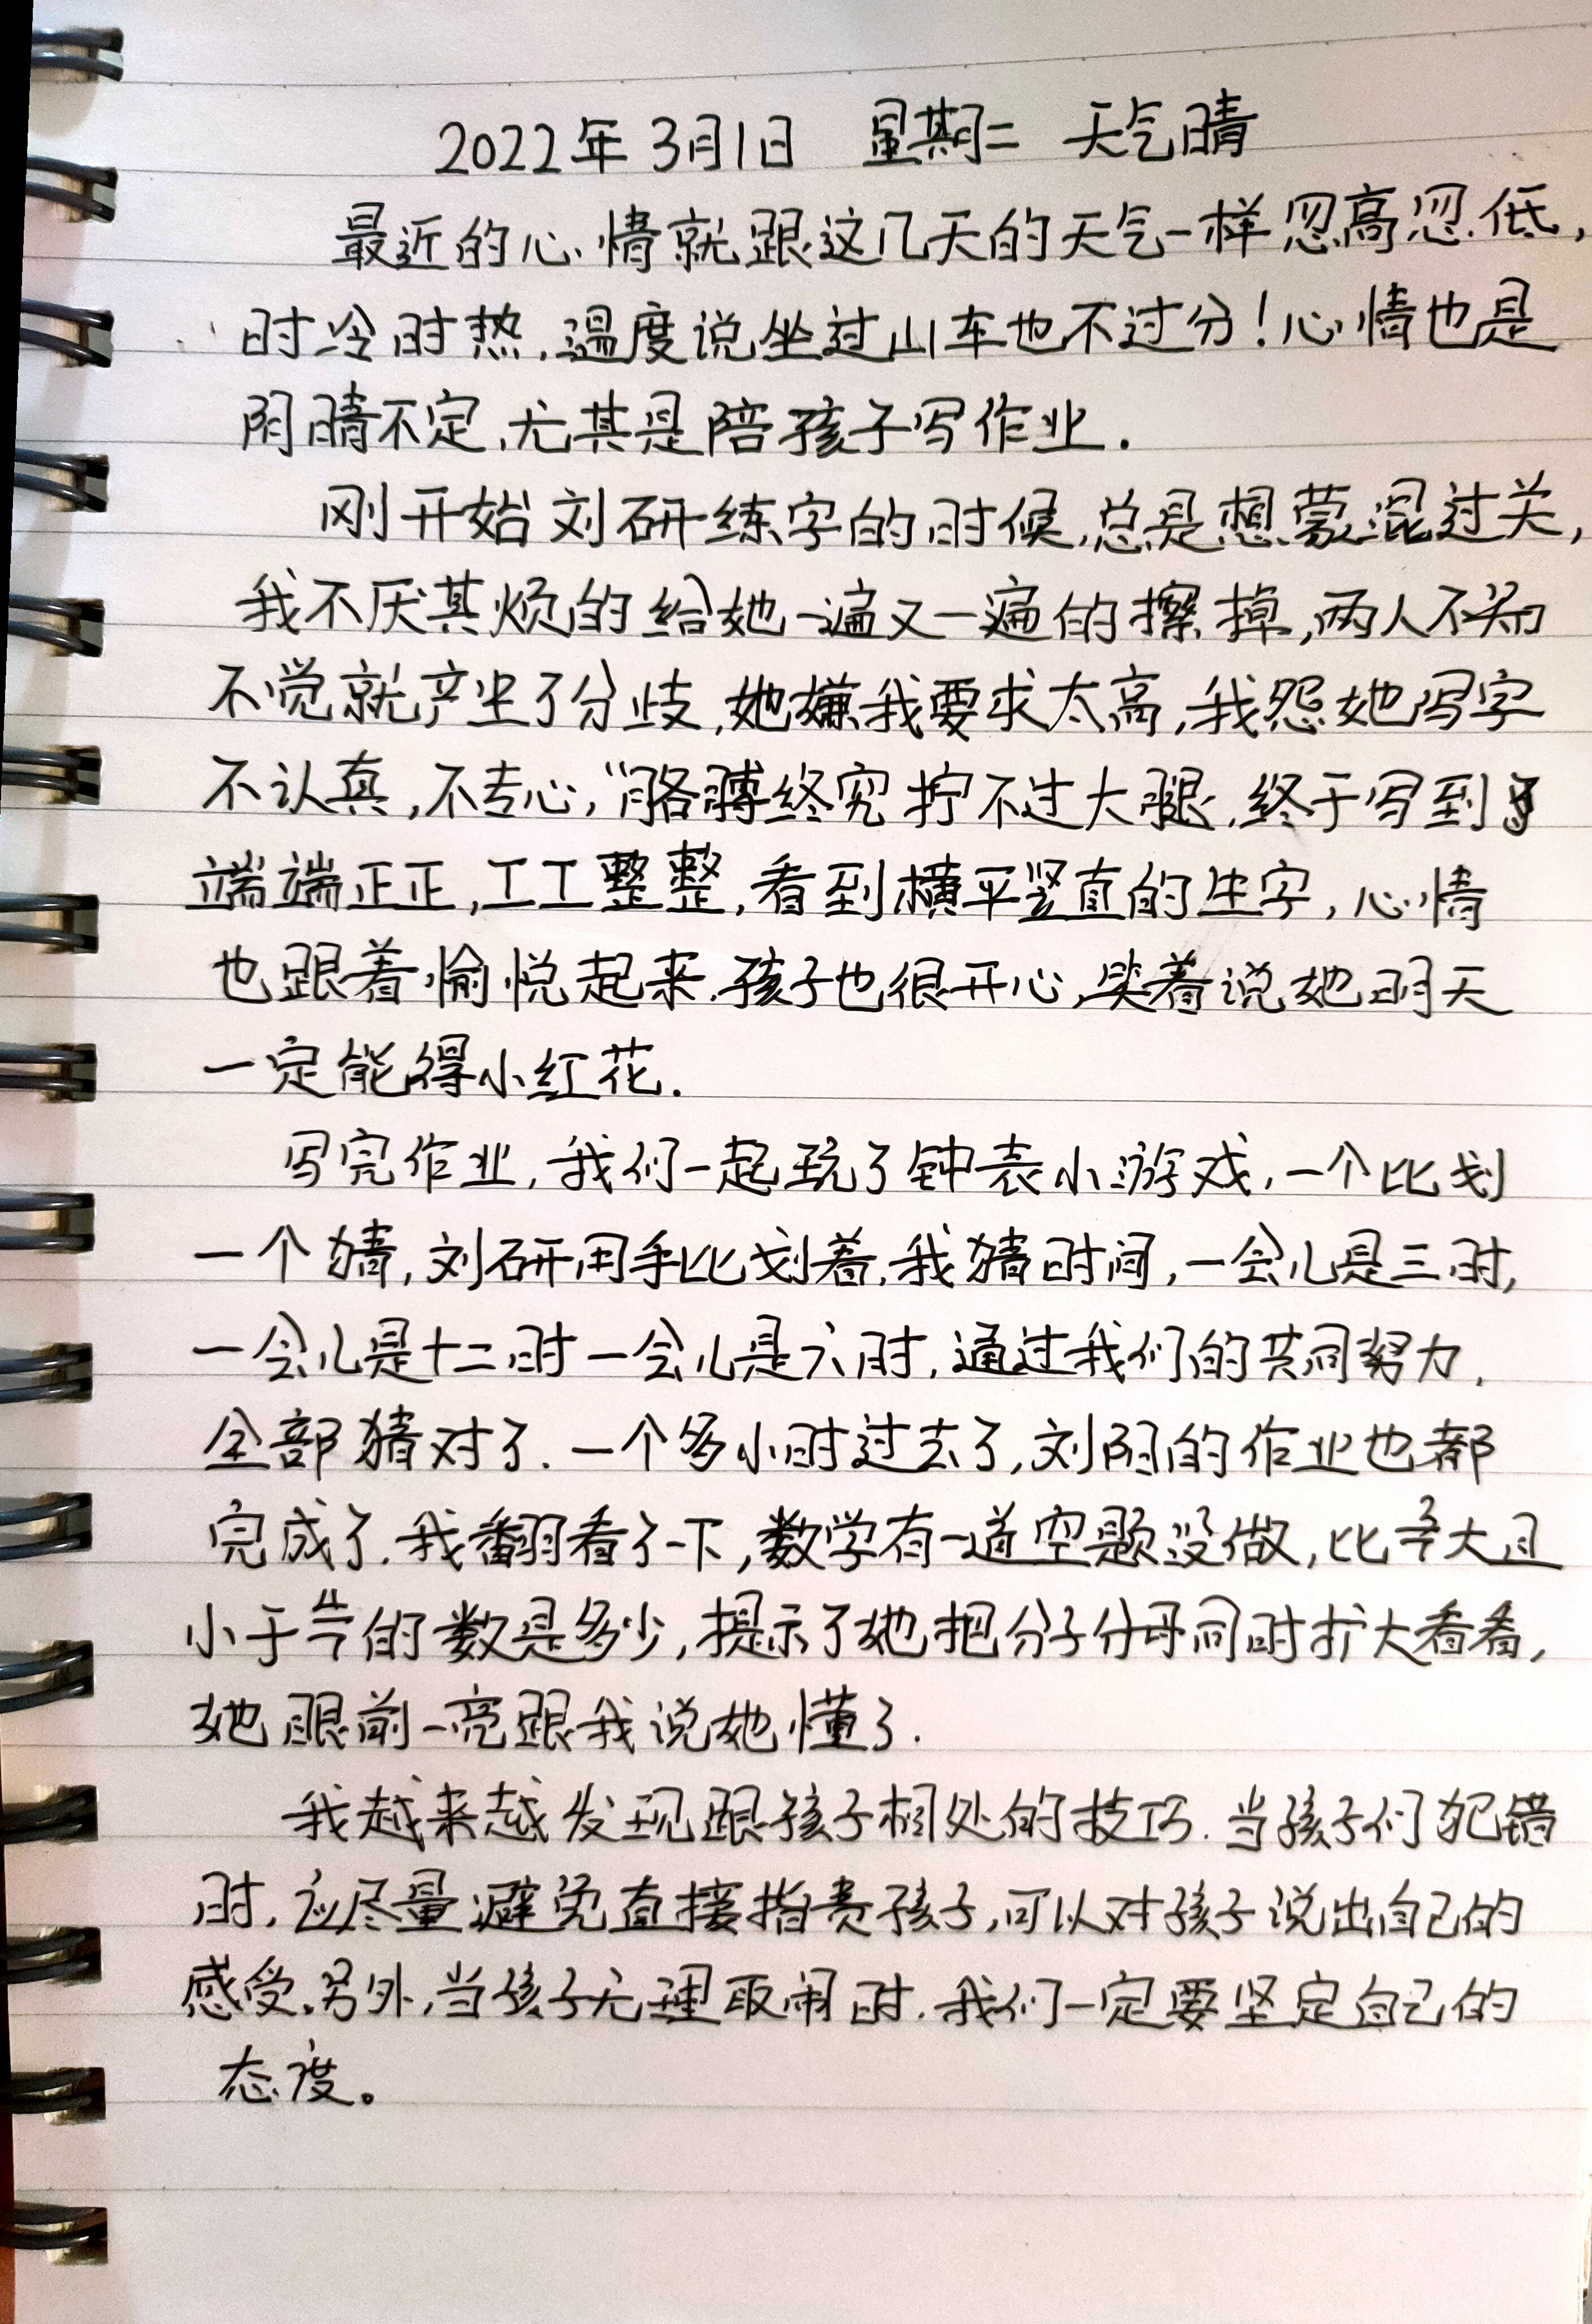 2022年3月1日 星期二 天气晴
最近的心情就跟这几天的天气一样忽高忽低,
时冷时热,温度说坐过山车也不过分!心情也是
阴晴不定,尤其是陪孩子写作业.
刚开始刘研练字的时候,总是想蒙混过关,
我不厌其烦的给她一遍又一遍的擦掉,两人不知
不觉就产生了分歧,她嫌我要求太高,我怨她写字
不认真,不专心,“胳膊终究拧不过大腿,终于写到了
端端正正,工工整整,看到横平竖直的生字,心情
也跟着愉悦起来.孩子也很开心,笑着说她明天
一定能得小红花.
写完作业,我们一起玩了钟表小游戏,一个比划
一个猜,刘研用手比划着,我猜时间,一会儿是三时,
一会儿是十二时一会儿是六时,通过我们的共同努力,
全部猜对了.一个多小时过去了,刘阴的作业也都
完成了.我翻看了一下,数学有一道空题没做,比大且
小于的数是多少,提示了她把分子分母同时扩大看看,
她眼前一亮跟我说她懂了.
我越来越发现跟孩子相处的技巧.当孩子们犯错
时,应尽量避免直接指责孩子,可以对孩子说出自己的
感受.另外,当孩子无理取闹时.我们一定要坚定自己的
态度。